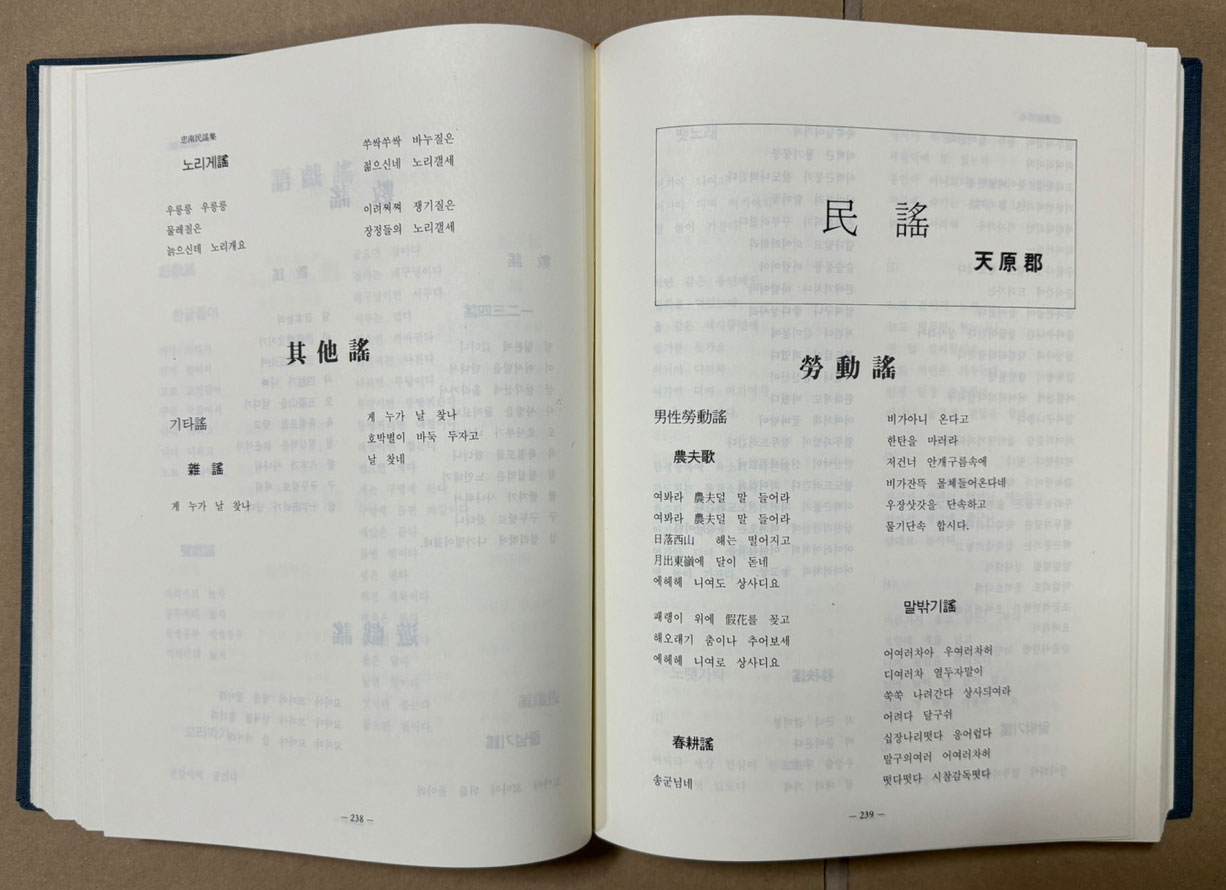 忠南民謠集
노리게謠
우릉릉 우릉릉
물레질은
늙으신테 노리개요
쑤싹쑤싹 바누질은
젊으신네 노리갤세
이려쩌쩌 쟁기질은
장정들의 노리갤세
其他謠
기타謠
雜謠
게 누가 날 찾나
게 누가 날 찾나
호박별이 바둑 두자고
날 찾네
— 238 —
民謠
天原郡
勞動謠
男性勞動謠
農夫歌
여봐라 農夫덜 말 들어라
여봐라 農夫덜 말 들어라
日落西山 해는 떨어지고
月出東嶺에 달이 돋네
에헤헤 니여도 상사디요
패랭이 위에 假花를 꽂고
해오래기 춤이나 추어보세
에헤헤 니여로 상사디요
春耕謠
송군님네
비가아니 온다고
한탄을 마러라
저건너 안개구름속에
비가잔뜩 몰체들어온다네
우장삿갓을 단속하고
물기단속 합시다.
말밖기謠
어여러차아 우여러차허
디여러차 열두자말이
쑥쑥 나려간다 상사듸여라
어려다 달구쉬
십장나리떳다 웅어럽다
말구의여러 어여러차허
떳다떳다 시찰감독떳다
— 239 —